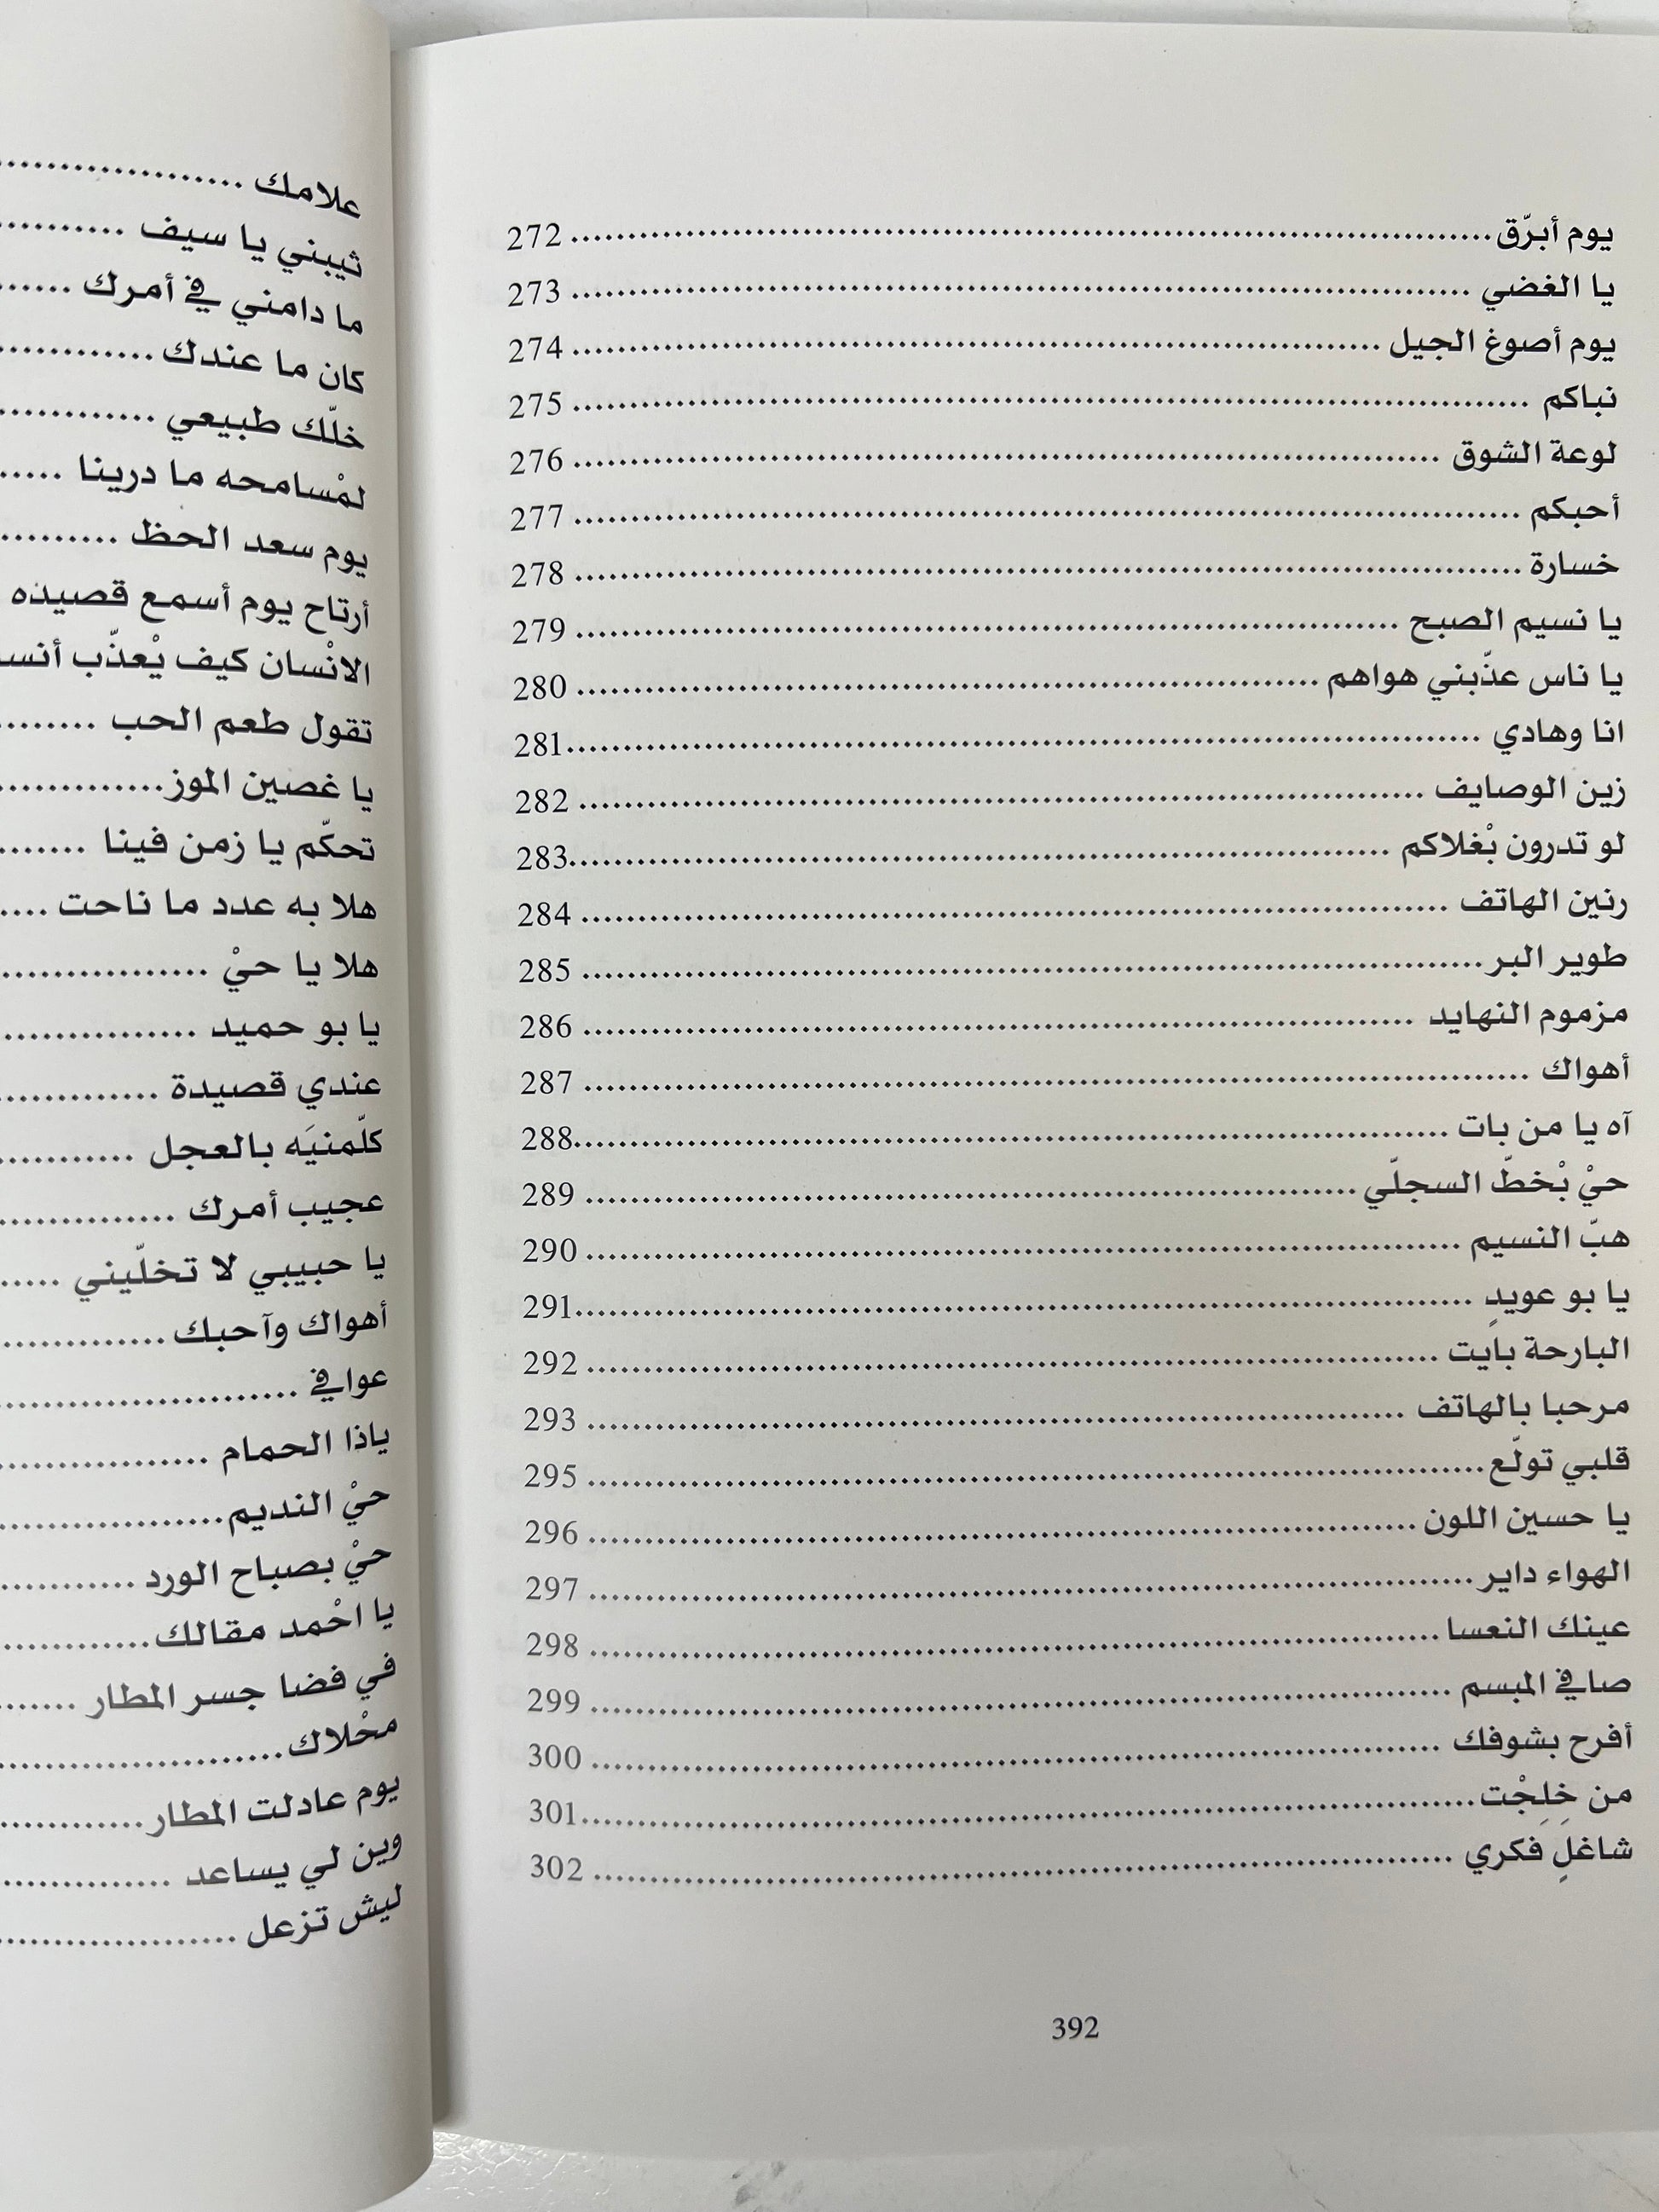 يوم أبرّق ........ 272
يا الغضي ........ 273
يوم أصوغ الجيل ........ 274
نباكم ........ 275
لوعة الشوق ........ 276
أحبكم ........ 277
خسارة ........ 278
يا نسيم الصبح ........ 279
يا ناس عذّبني هواهم ........ 280
انا وهادي ........ 281
زين الوصايف ........ 282
لو تدرون بْغلاكم ........ 283
رنين الهاتف ........ 284
طوير البر ........ 285
مزموم النهايد ........ 286
أهواك ........ 287
آه يا من بات ........ 288
حيْ بْخطّ السجلّي ........ 289
هبّ النسيم ........ 290
يا بو عويدِ ........ 291
البارحة بايت ........ 292
مرحبا بالهاتف ........ 293
قلبي تولّع ........ 295
يا حسين اللون ........ 296
الهواء داير ........ 297
عينك النعسا ........ 298
صافي المبسم ........ 299
أفرح بشوفك ........ 300
من خِلِجْت ........ 301
شاغلِ فكري ........ 302
392
علامك ........
ثيبني يا سيف ........
ما دامني في أمرك ........
كان ما عندك ........
خلّك طبيعي ........
لمْسامحه ما درينا ........
يوم سعد الحظ ........
أرتاح يوم أسمع قصيده
الانْسان كيف يْعذّب
تقول طعم الحب ........
يا غصين الموز ........
تحكّم يا زمن فينا ........
هلا به عدد ما ناحت ........
هلا يا حيْ ........
يا بو حميد ........
عندي قصيدة ........
كلّمنيَه بالعجل ........
عجيب أمرك ........
يا حبيبي لا تخلّيني ........
أهواك وآحبك ........
عوافي ........
ياذا الحمام ........
حيْ النديم ........
حيْ بصباح الورد ........
يا احْمد مقالك ........
في فضا جسر المطار ........
محْلاك ........
يوم عادلت المطار ........
وين لي يساعد ........
ليش تزعل ........